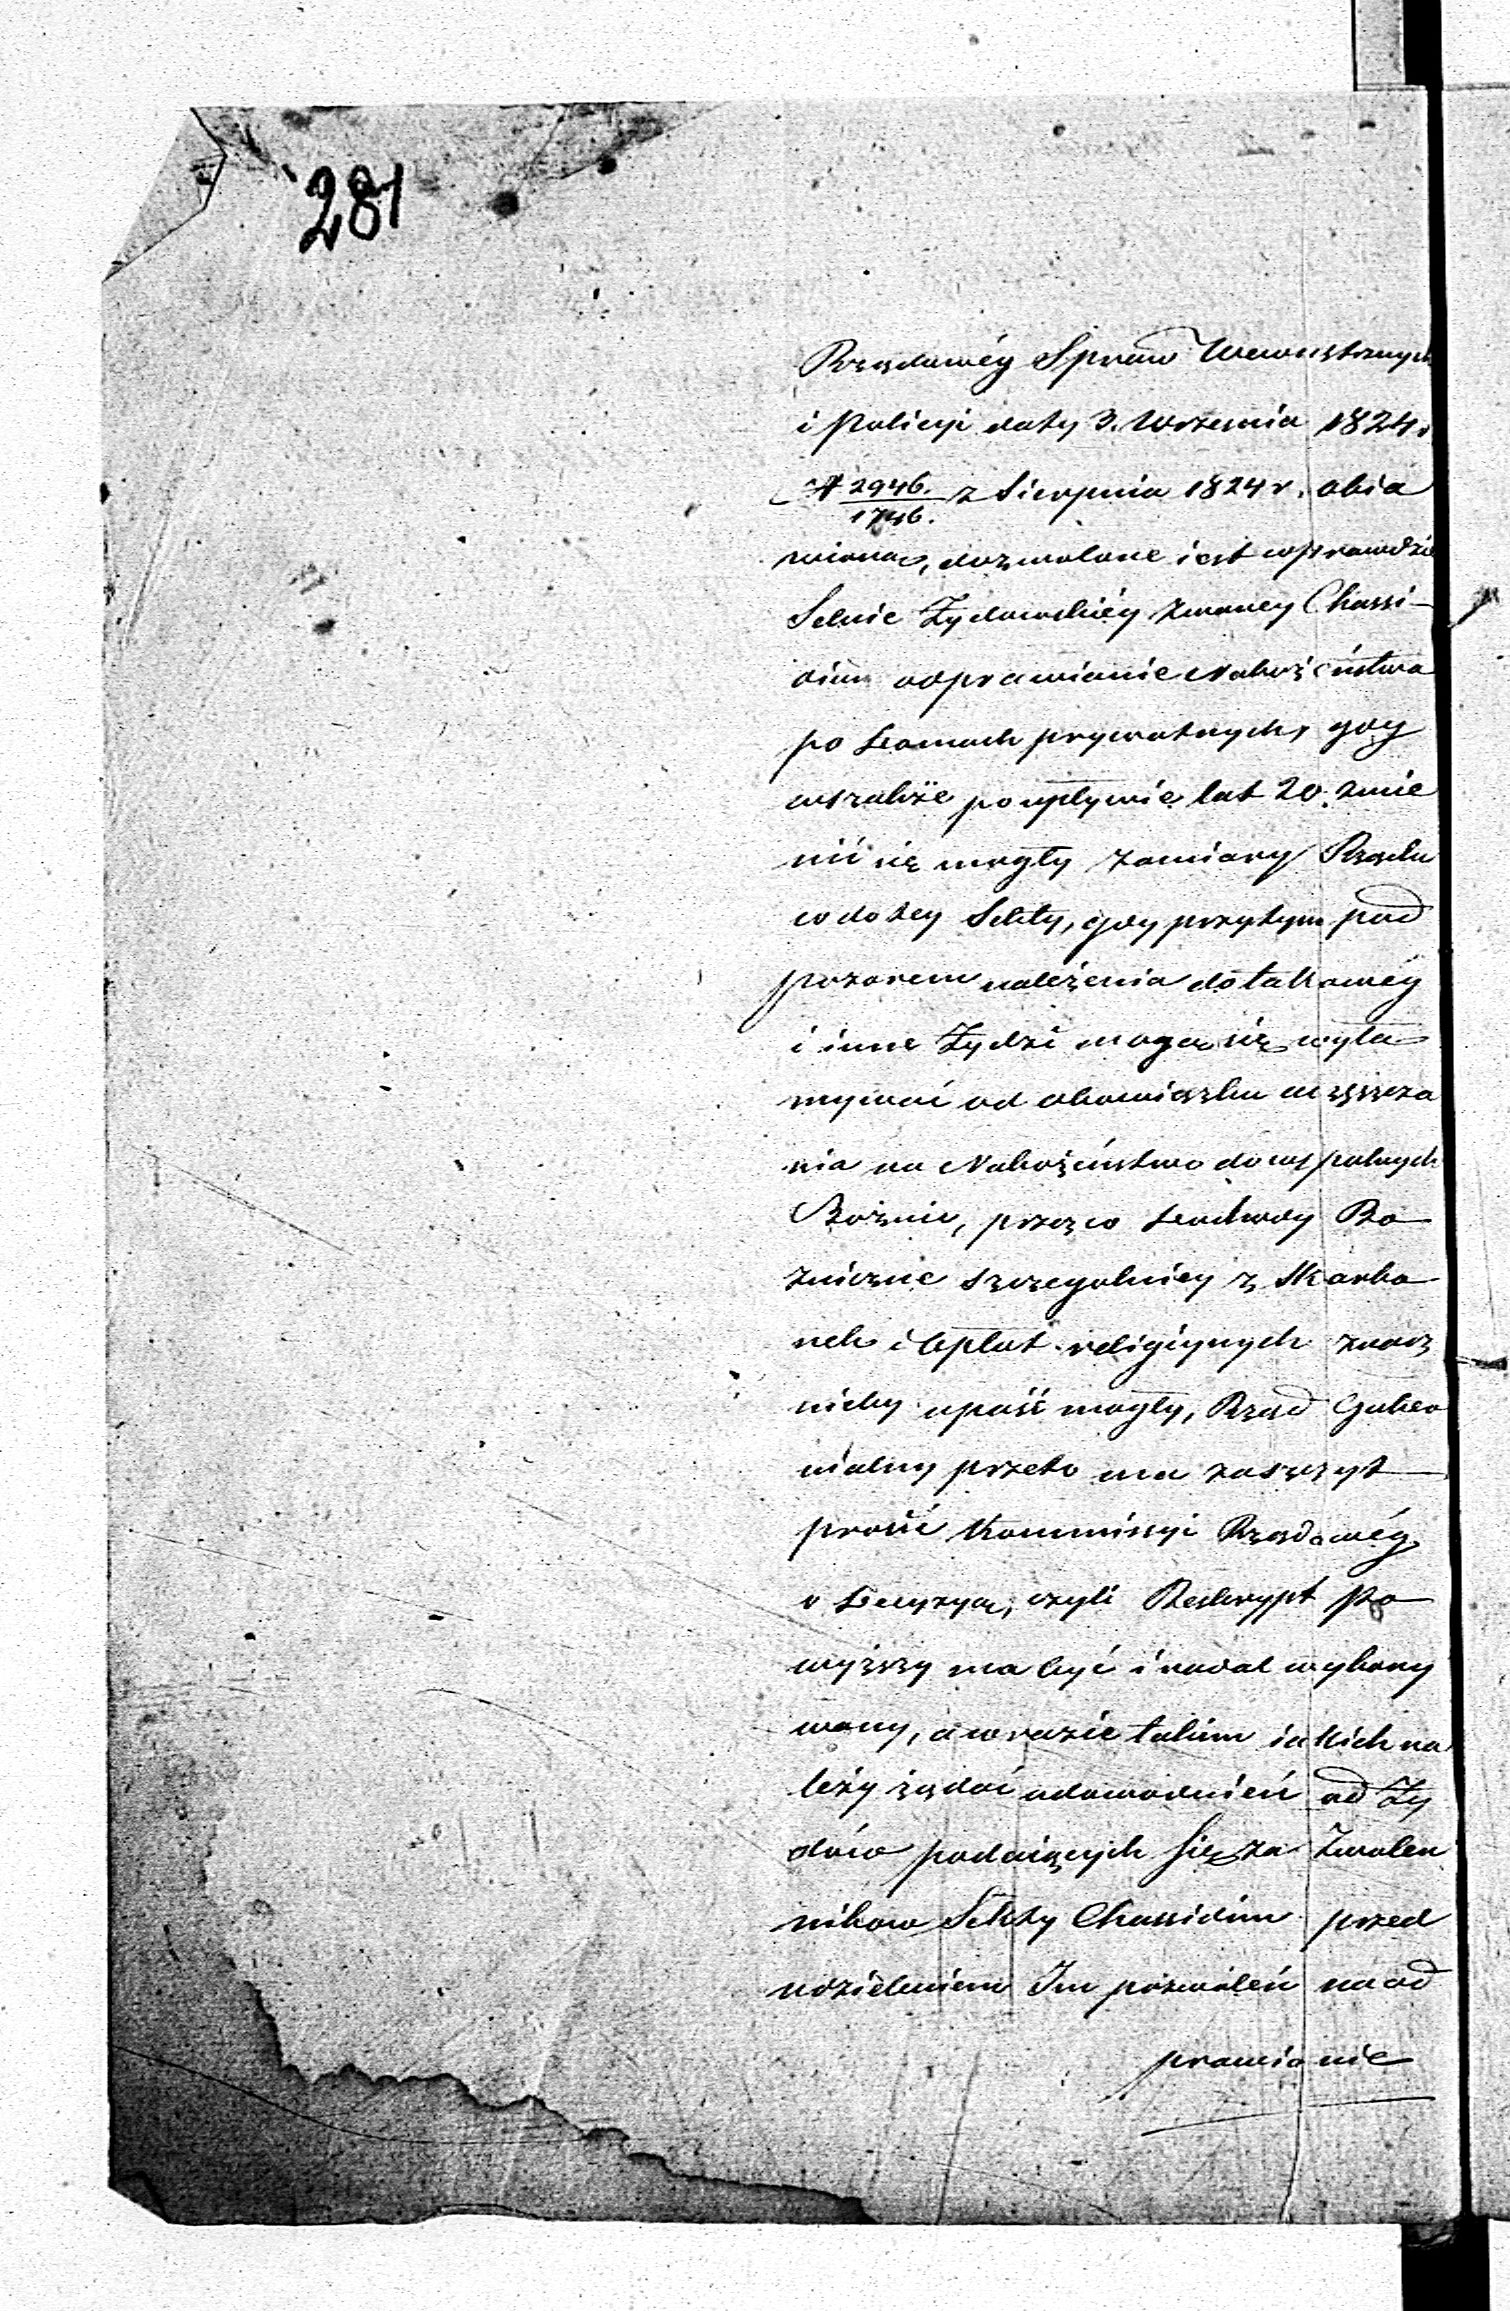 281
Rządowéy Spraw Wewnętrznych
i Policyi daty 3. Września 1824 r
№ 2946./1746. z Sierpnia 1824 r. obia
wioną, dozwolone iest wprawdzie
Sekcie Żydowskiéy zwaney Chassi-
dim odprawianie Nabożeństwa
po domach prywatnych, gdy
wszakże po upływie lat 20. zmie
nić się mogły zamiary Rządu
co do tey Sekty, gdy przytym pod
pozorem należenia do takowéy
i inne Żydzi mogą się wyła
mywać od obowiązku uczęszcza
nia na Nabożeństwo do wspólnych
Bożnic, przez co dochody Bo
żniczne szczegolniey z skarbo
nek i opłat religiynych znacz
nieby upaść mogły, Rząd Guber
nialny przeto ma zaszczyt
prosić Kommissyi Rządowéy
o decyzyą, czyli Reskrypt po
wyższy ma być i nadal wykony
wany, a w razie takim iakich na
leży żądać udowodnień od Ży
dów podaiących się za Zwolen
nikow Sekty Chassidim przed
udzieleniem Im pozwoleń na od
prawianie